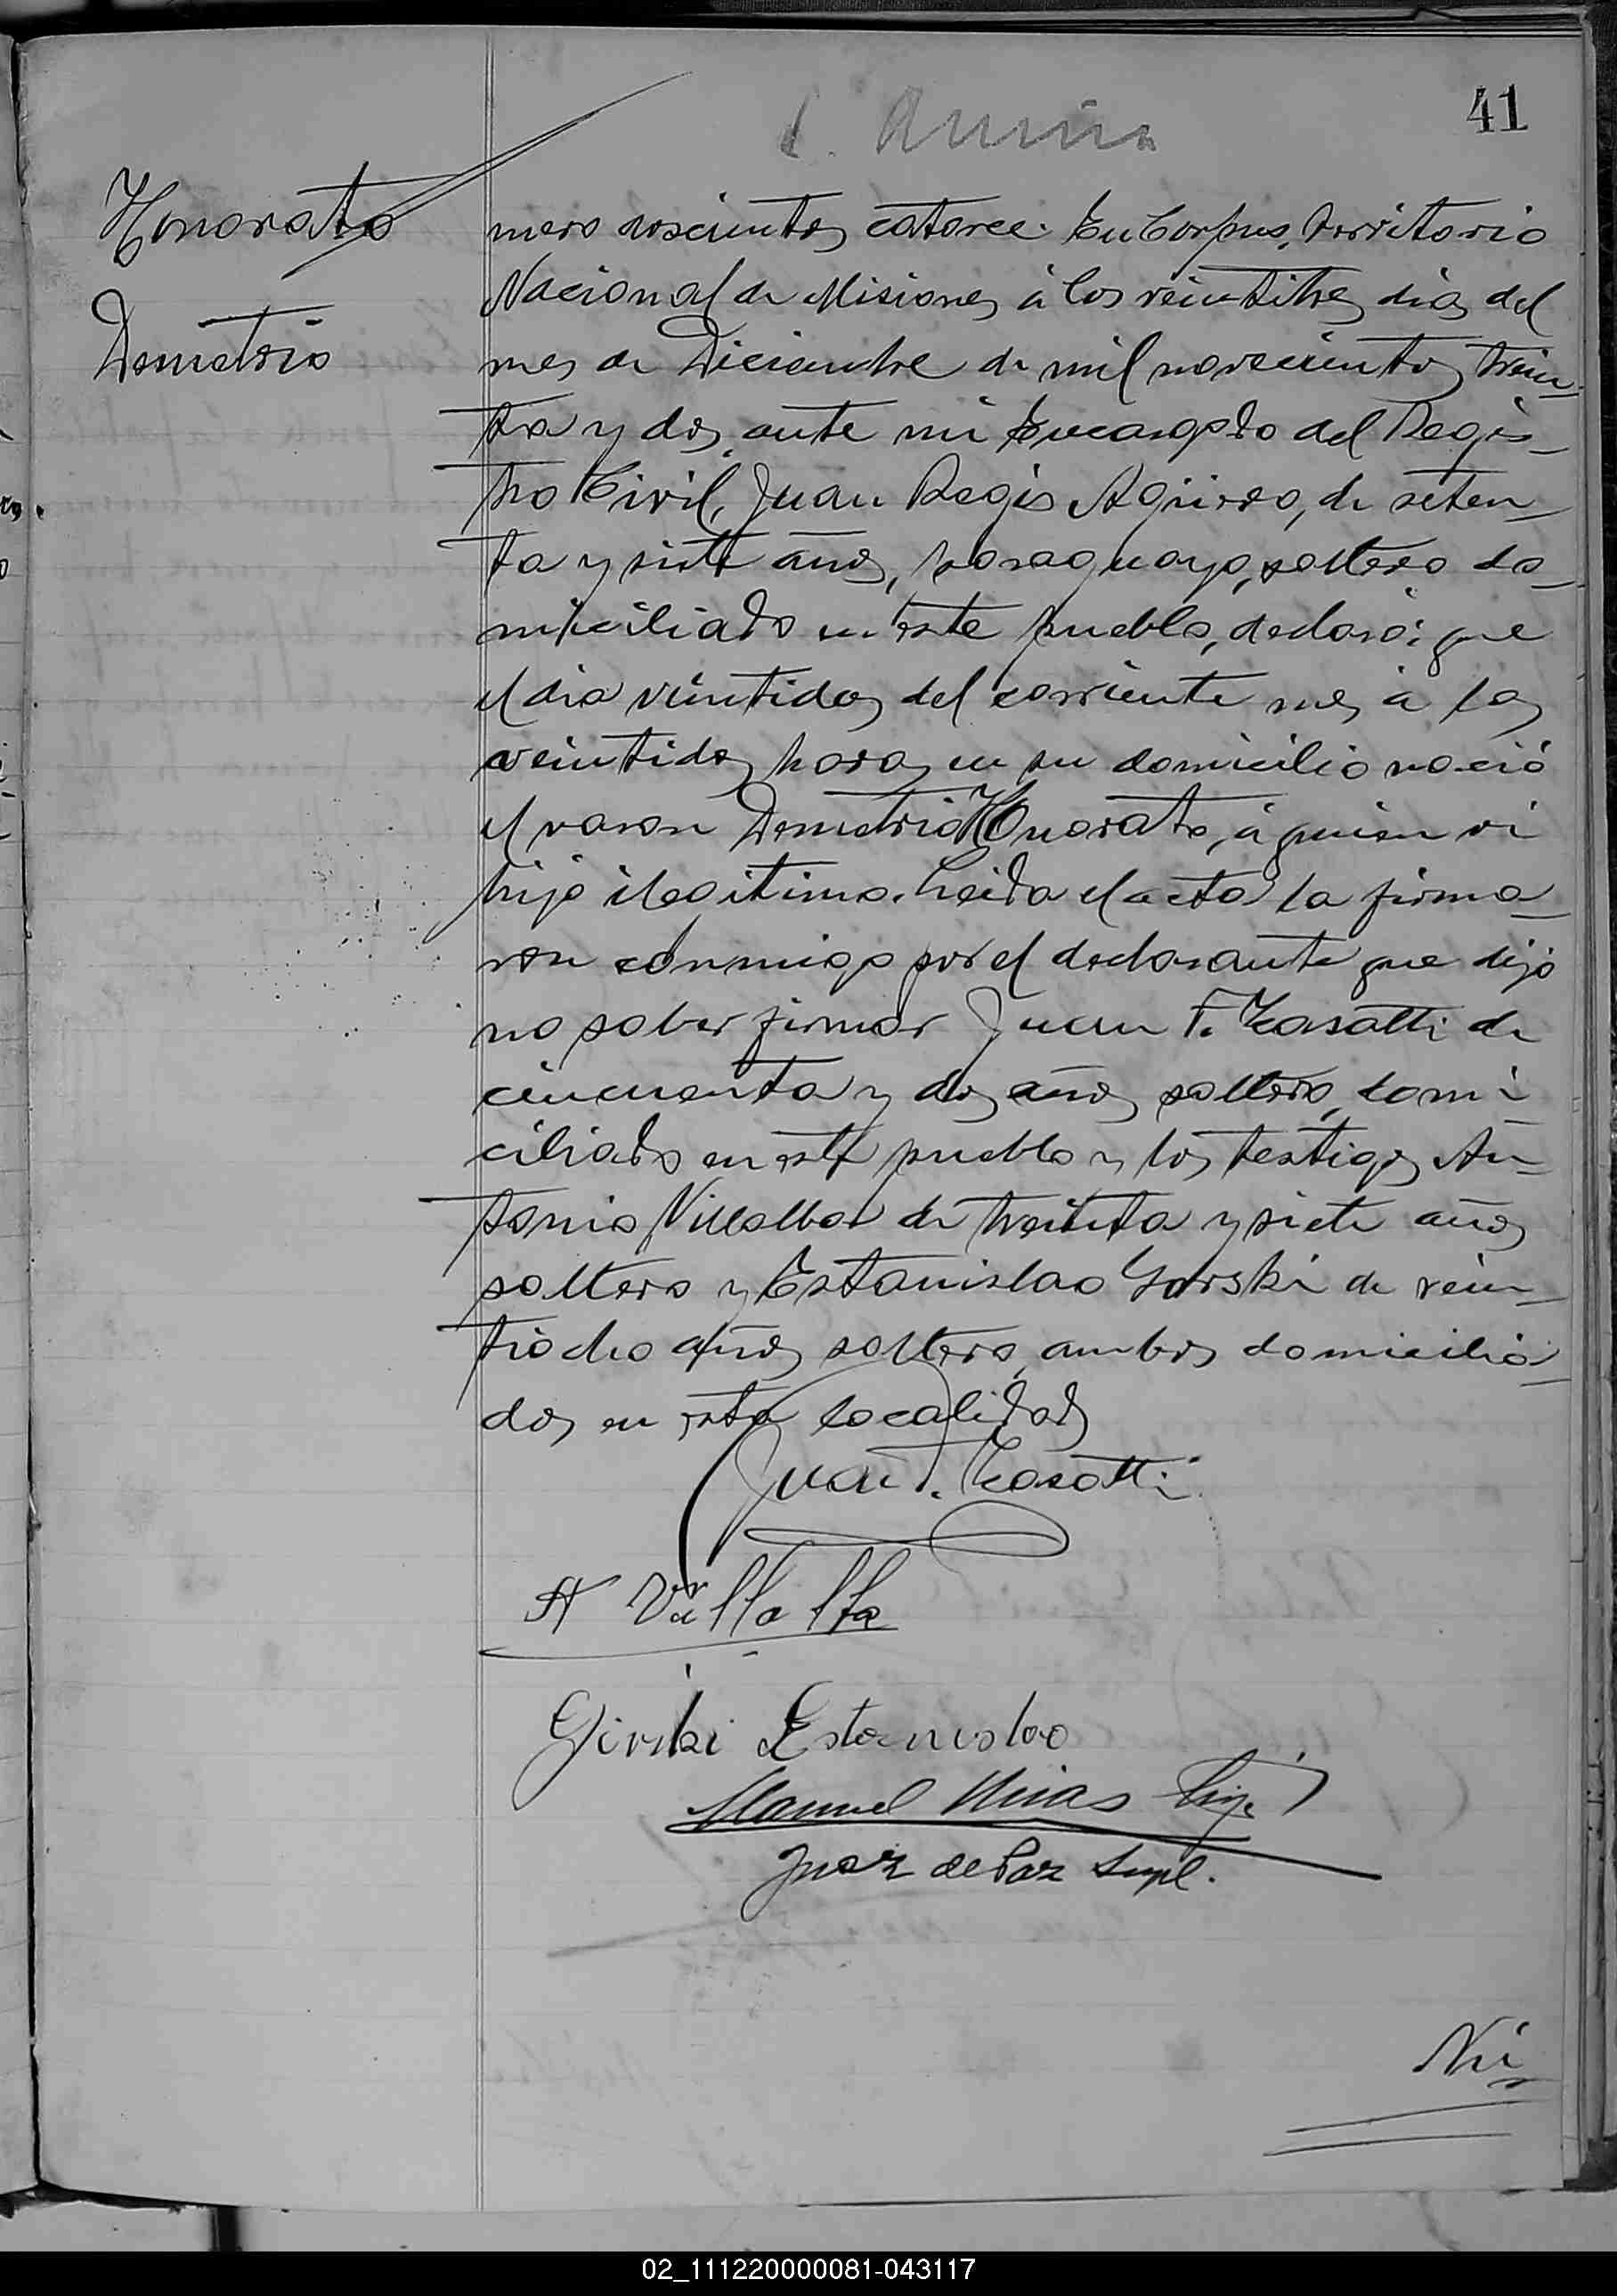 41
Honorato
Demetrio
mero doscientos catorce. En Corpus, Territorio
Nacional de Misiones á los veintitres dias del
mes de Diciembre de mil novecientos trein-
ta y dos, ante mi Encargado del Regis-
tro Civil, Juan Regis Aguirre, de seten-
ta y siete años, paraguayo, soltero do-
miciliado en este pueblo, declaró: que
el dia veintidos del corriente mes á las
veintidos horas en su domicilio nació
el varon Demetrio Honorato, á quien vi
hijo ilegitimo. Leida el acta la firma-
ron conmigo por el declarante que dijo
no saber firmar Juan F. Casatti de
cincuenta y dos años soltero, domi
ciliado en este pueblo y los testigos An-
tonio Villalba de treinta y siete años
soltero y Estanislao Gorski de vein-
tiocho años soltero, ambos domicilia-
dos en esta localidad
Juan F. Casatti
A Villalba
Gorski Estanislao
Manuel
Juez de Paz Supl.
Nú-
02_111220000081-043117